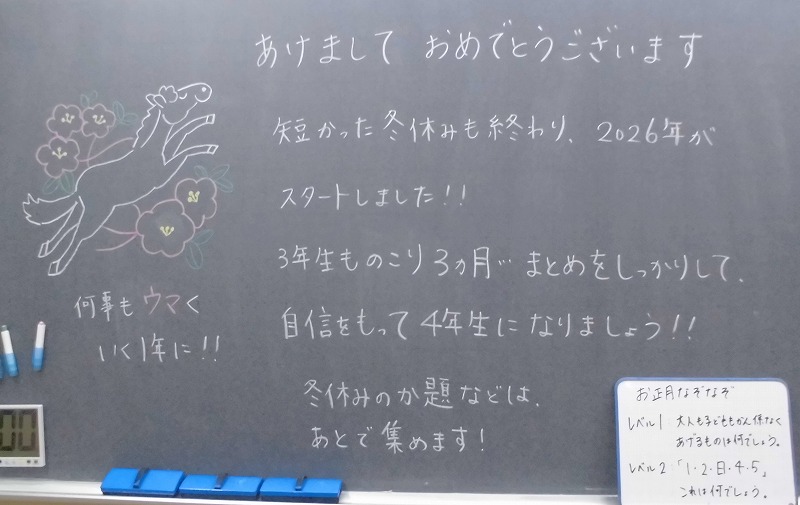 あけまして おめでとうございます
短かった冬休みも終わり、2026年が
スタートしました!!
3年生ものこり3ヵ月… まとめをしっかりして、
自信をもって4年生になりましょう!!
冬休みのか題などは、
あとで集めます!
何事もウマく
いく1年に!!
お正月なぞなぞ
レベル1 大人も子どももかん係なく
あげるものは何でしょう。
レベル2 「1・2・日・4・5」
これは何でしょう。
00